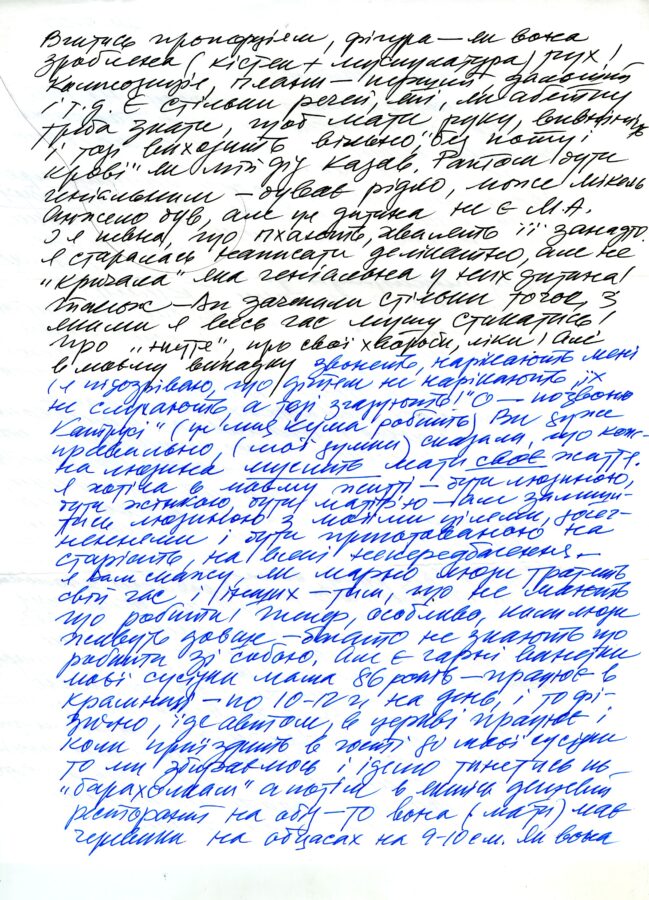 Вчитись пропорціям, фігура — як вона
зроблена (кістки + мускулатура) рух!
Композиція, плани — перший дальший
і т.д. Є стільки речей, які, як абетку
треба знати, щоб мати руку,
і тоді виходить вільно, "без поту і
крові" як мій дід казав. Раптом бути
геніяльним — буває рідко, може Мікель
Анжело був, але ця дитина не є М.А.
І я певна, що пхають, хвалять її занадто.
Я старалась написати делікатно, але не
"кричала" яка геніальна у них дитина!
Також — Ви зачепили стільки точок, з
якими я весь час мушу стикатись!
про "життя", про свої хвороби, ліки! Але
в моьму випадку дзвонять, нарікають мені
(я підозріваю, що дітям не нарікають, їх
не слухають, а тоді згадують! "О — позвоню
Катрусі" (це моя кума робить) Ви дуже
правильно, (мої думки) сказали, що кож-
на людина мусить мати своє життя.
Я хотіла в моьму житті — бути людиною,
бути жінкою, бути матірю — але залиши-
тись людиною з моїми цілями, досяг-
неннями і бути приготованою на
старість, на всякі непередбачення.
Я Вам скажу, як марно люди тратять
свій час і інших — тим, що не знають
що робити! Тепер, особливо, коли люди
живуть довше — багато не знають що
робити зі собою. Але є гарні винятки
моєї сусідки мама 86 років — працює в
крамниці — по 10-12 г. на день, і то фі-
зично, їде автом, в церкві працює і
коли приїздить в гості до моєї сусідки
то ми збираємось і їдемо тинятись по
"барахолкам" а потім в якийсь дешевий
ресторант на обід — то вона (мати) має
черевики на обцасах на 9-10 см. Як вона